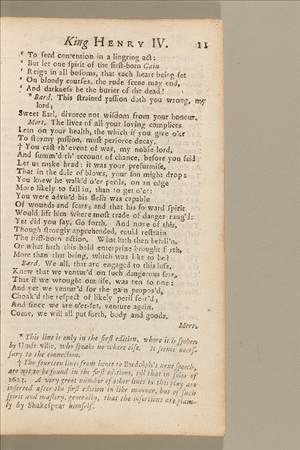 King HENRY IV. 11
" To feed contention in a lingring act:
" But let one spirit of the first-born Cain
" Reign in all bosoms, that each heart being set
" On bloody courses, the rude scene may end,
" And darkness be the burier of the dead!
* Bard. This strained passion doth you wrong, my
lord;
Sweet Earl, divorce not wisdom from your honour.
Mort. The lives of all your loving complices
Lean on your health, the which if you give o'er
To stormy passion, must perforce decay.
† You cast th' event of war, my noble lord,
And summ'd th' account of chance, before you said
Let us make head: it was your presurmise,
That in the dole of blows, your son might drop:
You knew he walk'd o'er perils, on an edge
More likely to fall in, than to get o'er:
You were advis'd his flesh was capable
Of wounds and scars; and that his forward spirit
Would lift him where most trade of danger rang'd:
Yet did you say, Go forth. And none of this,
Though strongly apprehended, could restrain
The stiff-born action. What hath then befall'n,
Or what hath this bold enterprize brought forth,
More than that being, which was like to be?
Bard. We all, that are engaged to this loss,
Knew that we ventur'd on such dangerous seas,
That if we wrought our life, was ten to one:
And yet we ventur'd for the gain propos'd,
Choak'd the respect of likely peril fear'd;
And since we are o'er-set, venture again.
Come, we will all put forth, body and goods.
Mort.
* This line is only in the first edition, where it is spoken
by Umfrevile, who speaks no where else. It seems neces-
sary to the connection.
† The fourteen lines from hence to Bardolph's next speech,
are not to be found in the first editions, till that in folio of
1623. A very great number of other lines in this play are
inserted after the first edition in like manner, but of such
spirit and mastery, generally, that the insertions are plain-
ly by Shakespear himself.